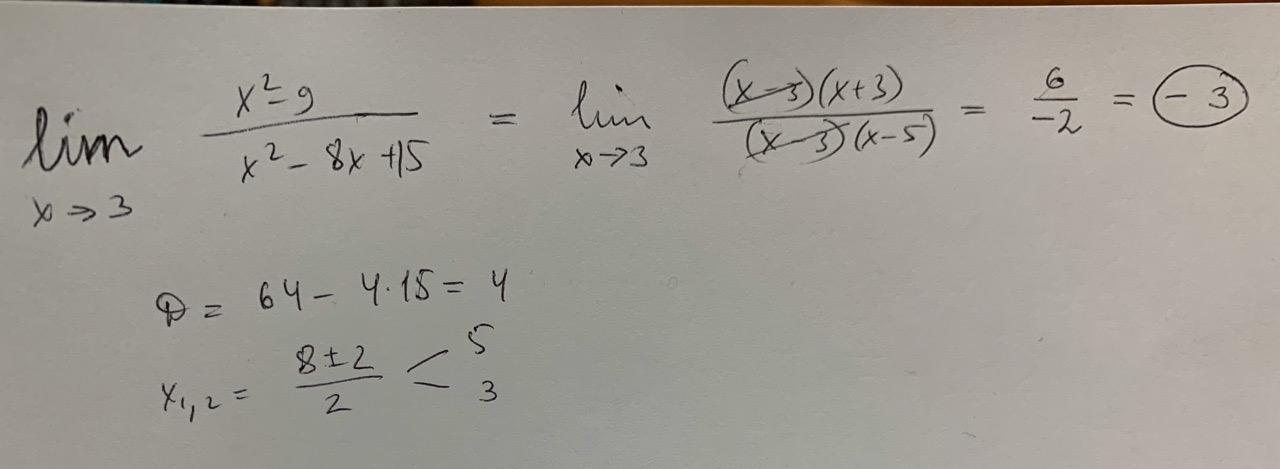 lim x→3 (x²-9)/(x² - 8x + 15) = lim x→3 ((x-3)(x+3))/((x-3)(x-5)) = 6/-2 = -3
D = 64 - 4·15 = 4
x₁,₂ = (8±2)/2 < 5 3